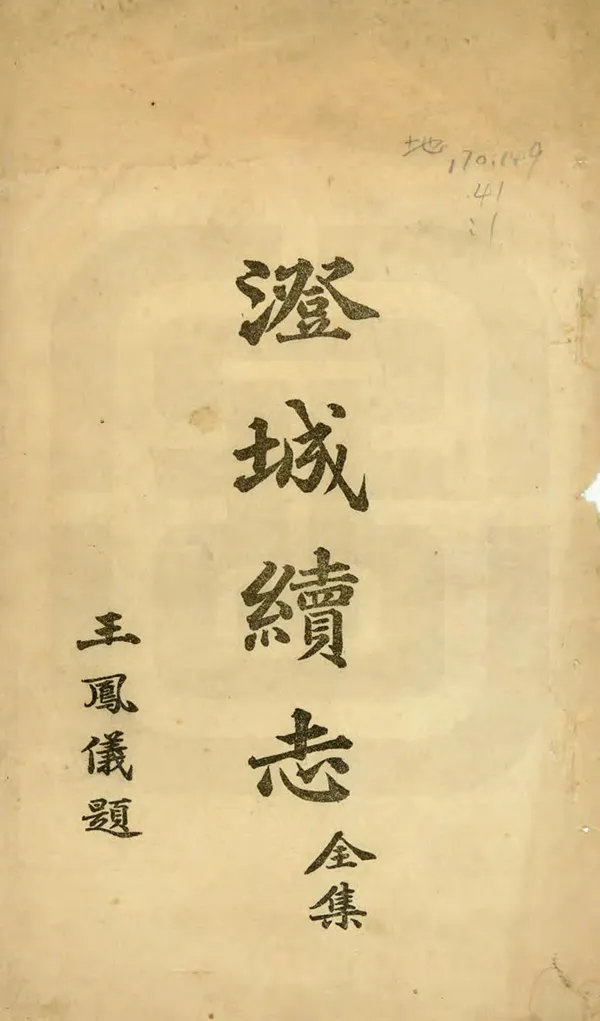 澄城續志
全集
王鳳儀題
地
41